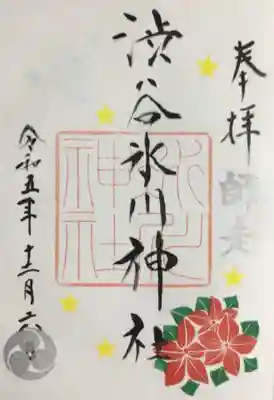 奉拝
師走
渋谷氷川神社
令和五年十二月二六日
氷川神社